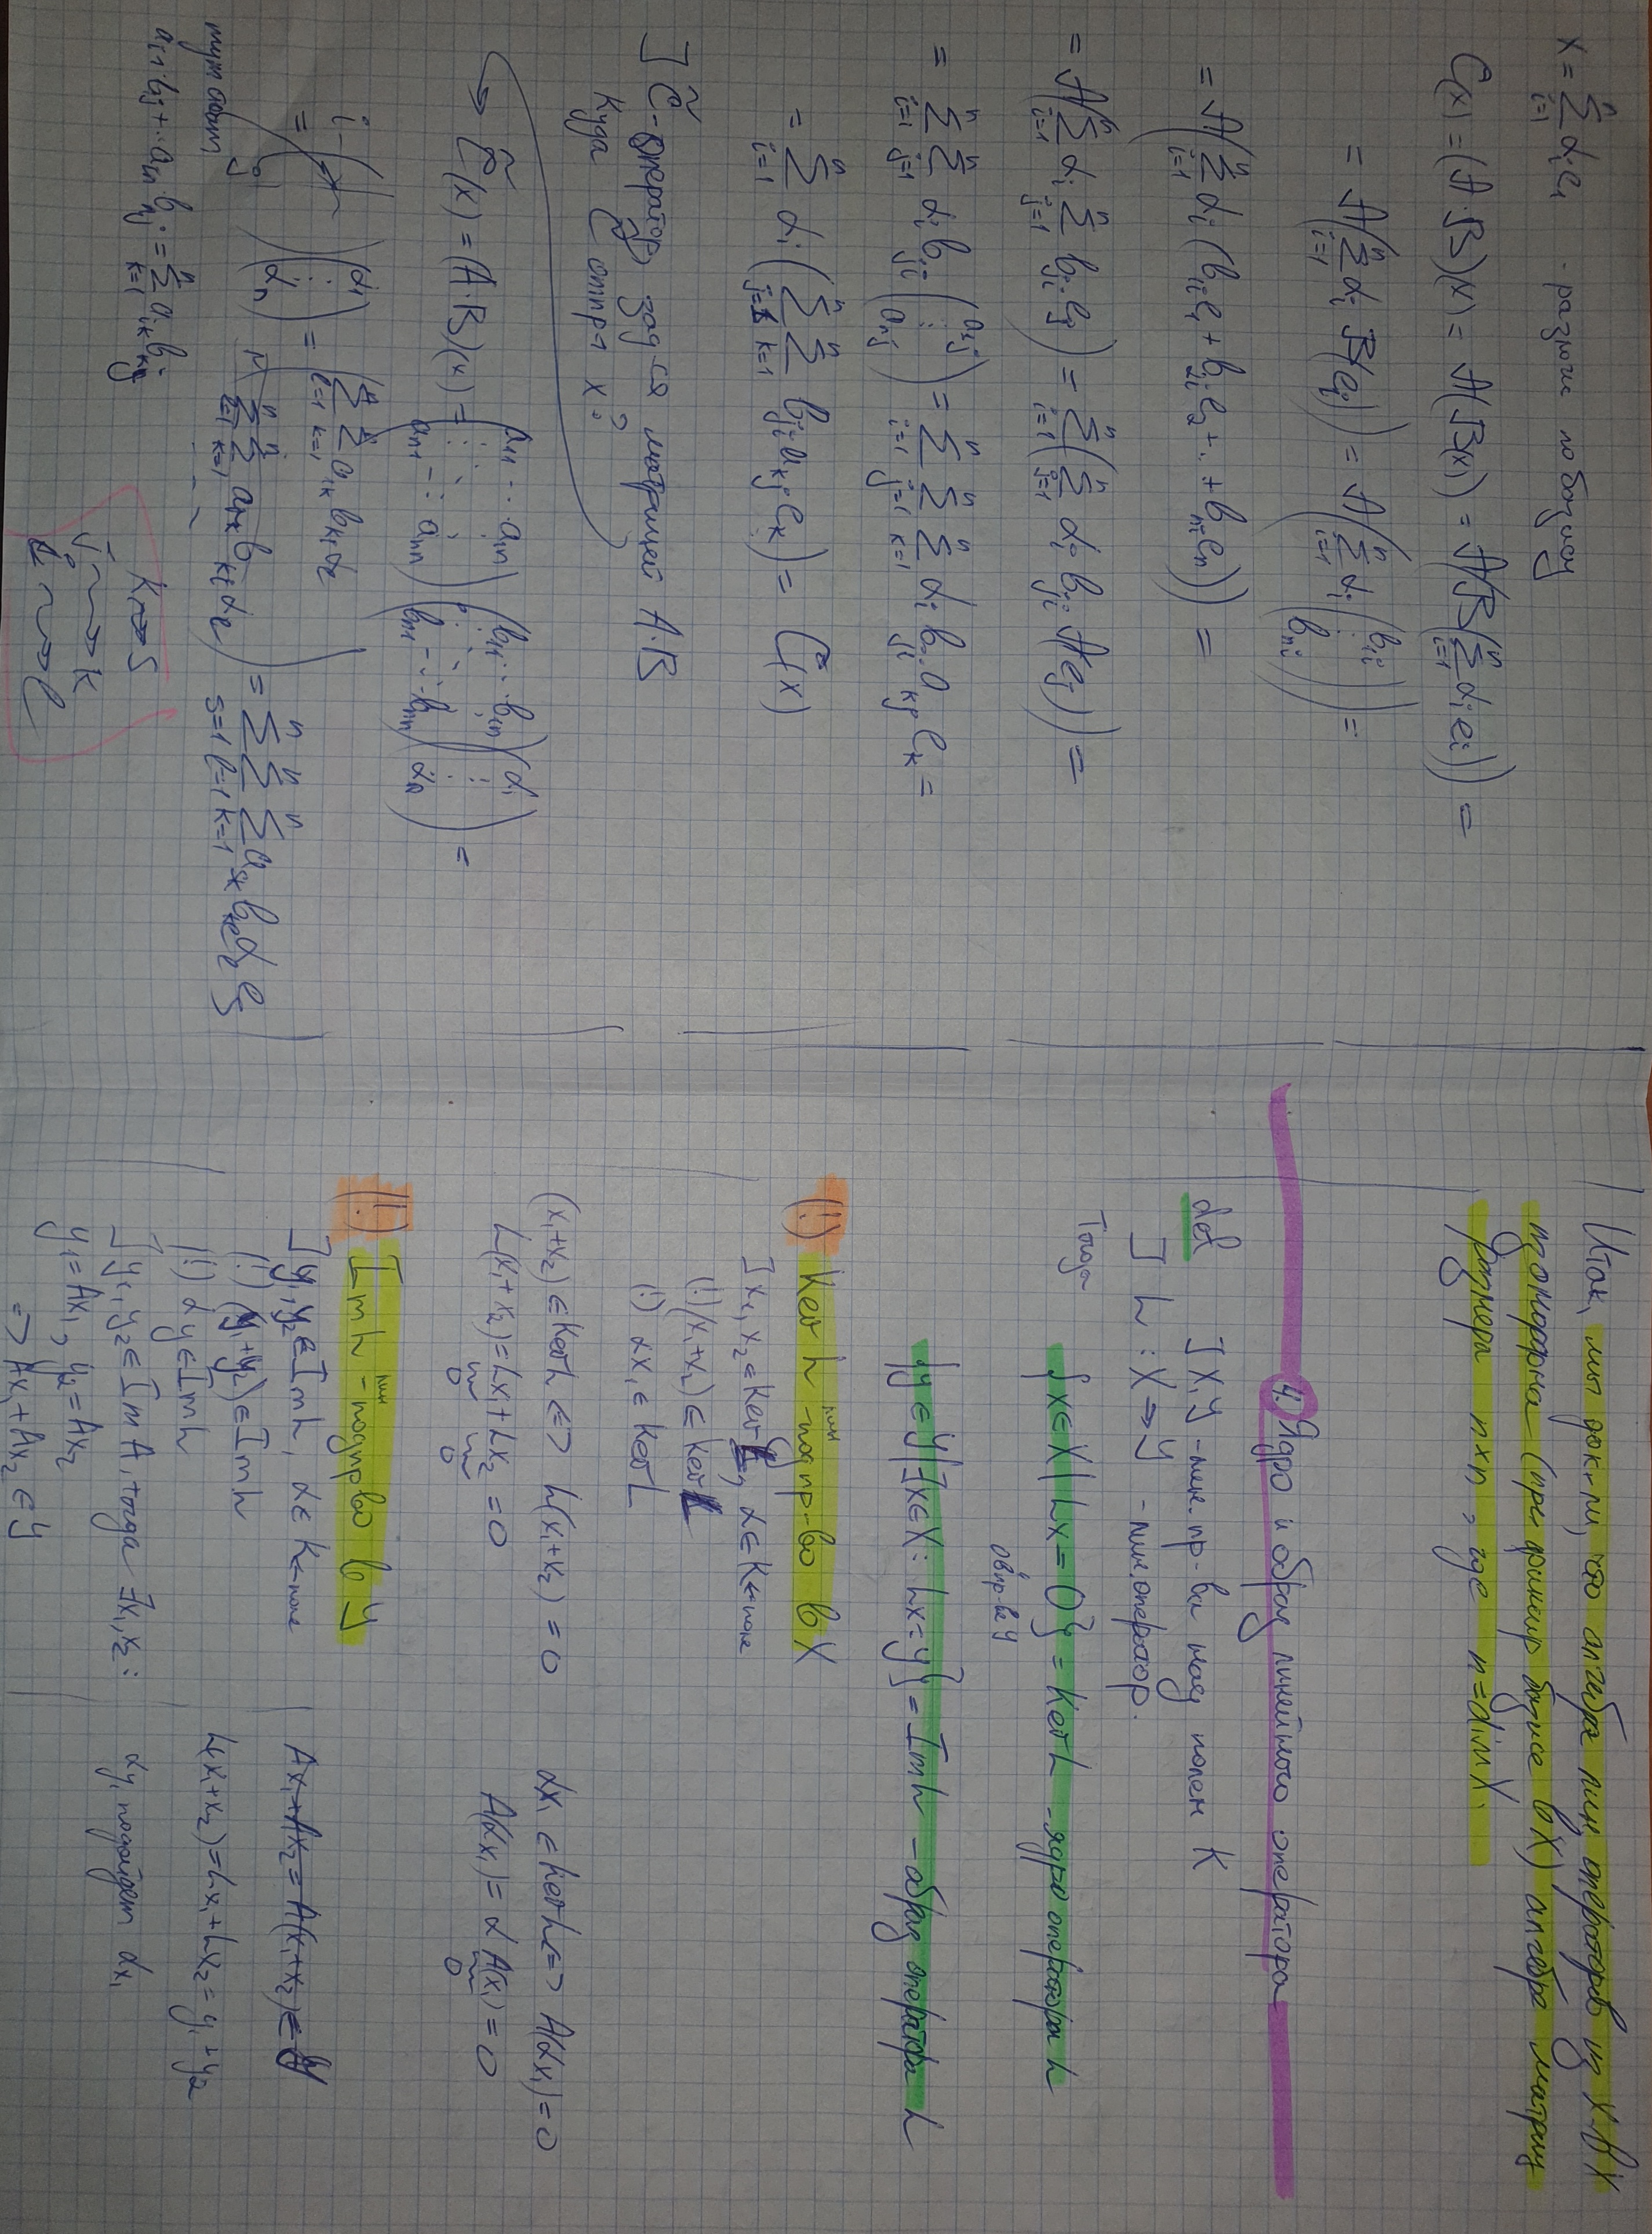 x = ∑ᵢ₌₁ⁿ αᵢeᵢ - разлож по базису
C(x) = (A·B)(x) = A(B(x)) = A(B(∑ᵢ₌₁ⁿ αᵢeᵢ)) =
= A(∑ᵢ₌₁ⁿ αᵢ B(eᵢ)) = A(∑ᵢ₌₁ⁿ αᵢ (b₁ᵢ ⋮ bₙᵢ)) =
= A(∑ᵢ₌₁ⁿ αᵢ (b₁ᵢe₁ + b₂ᵢe₂ + .. + bₙᵢeₙ)) =
= A(∑ᵢ₌₁ⁿ αᵢ ∑ⱼ₌₁ⁿ bⱼᵢeⱼ) = ∑ᵢ₌₁ⁿ (∑ⱼ₌₁ⁿ αᵢ bⱼᵢ Aeⱼ) =
= ∑ᵢ₌₁ⁿ ∑ⱼ₌₁ⁿ αᵢ bⱼᵢ (a₁ⱼ ⋮ aₙⱼ) = ∑ᵢ₌₁ⁿ ∑ⱼ₌₁ⁿ ∑ₖ₌₁ⁿ αᵢ bⱼᵢ aₖⱼ eₖ =
= ∑ᵢ₌₁ⁿ αᵢ (∑ⱼ₌₁ⁿ ∑ₖ₌₁ⁿ bⱼᵢ aₖⱼ eₖ) = C(x)
] C̃ - оператор) зад-ся матрицей A·B
Куда C̃ отпр-т x?
→ C̃(x) = (A·B)(x) = (a₁₁ … a₁ₙ ⋮ aₙ₁ … aₙₙ)(b₁₁ … b₁ₙ ⋮ bₙ₁ … bₙₙ)(α₁ ⋮ αₙ) =
= i-(j)(α₁ ⋮ αₙ) = (∑ₗ₌₁ⁿ ∑ₖ₌₁ⁿ a₁ₖ bₖₗ αₗ ⋮ ∑ₗ₌₁ⁿ ∑ₖ₌₁ⁿ aₙₖ bₖₗ αₗ) = ∑ₛ₌₁ⁿ ∑ₗ₌₁ⁿ ∑ₖ₌₁ⁿ aₛₖ bₖₗ αₗ eₛ
aᵢ₁·b₁ⱼ + .. aᵢₙ bₙⱼ = ∑ₖ₌₁ⁿ aᵢₖ bₖⱼ
k ↝ s
j ↝ k
i ↝ l
Итак, мы док-ли, что алгебра лин операторов из X в X
изоморфна (при фиксир базисе в X) алгебре матриц
размера n×n, где n = dim X.
4.) Ядро и образ линейного оператора
def ] X, Y - лин. пр-ва над полем K
] L : X → Y - лин. оператор.
Тогда {x ∈ X | Lx = 0} = Ker L - ядро оператора L
0 в пр-ве Y
{y ∈ Y | ∃x ∈ X : Lx = y} = Im L - образ оператора L
(!) Ker L - лин подпр-во в X
] x₁, x₂ ∈ Ker L, α ∈ K ← поле
(!) (x₁ + x₂) ∈ Ker L
(!) αx₁ ∈ Ker L
(x₁ + x₂) ∈ Ker L <=> L(x₁ + x₂) = 0
L(x₁ + x₂) = Lx₁ + Lx₂ = 0
0 0
αx₁ ∈ Ker L <=> A(αx₁) = 0
A(αx₁) = αA(x₁) = 0
0
(!) Im L - лин подпр-во в Y
] y₁, y₂ ∈ Im L, α ∈ K ← поле
(!) (y₁ + y₂) ∈ Im L
(!) αy ∈ Im L
] y₁, y₂ ∈ Im A, тогда ∃ x₁, x₂ :
y₁ = Ax₁, y₂ = Ax₂
=> Ax₁ + Ax₂ ∈ Y
Ax₁ + Ax₂ = A(x₁ + x₂) ∈ Y
L(x₁ + x₂) = Lx₁ + Lx₂ = y₁ + y₂
αy₁ подойдет αx₁